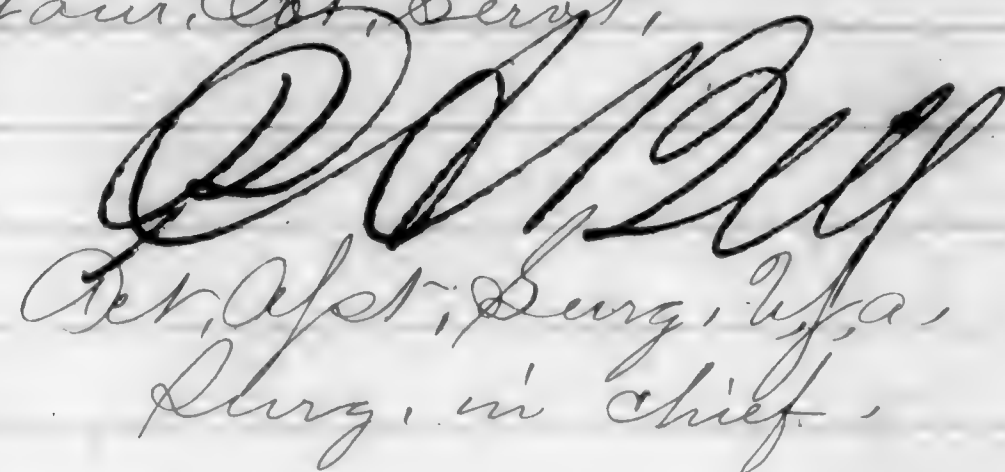 Your, Obt, Servt,
Act, Asst, Surg, U,S,a,
Surg, in chief.,